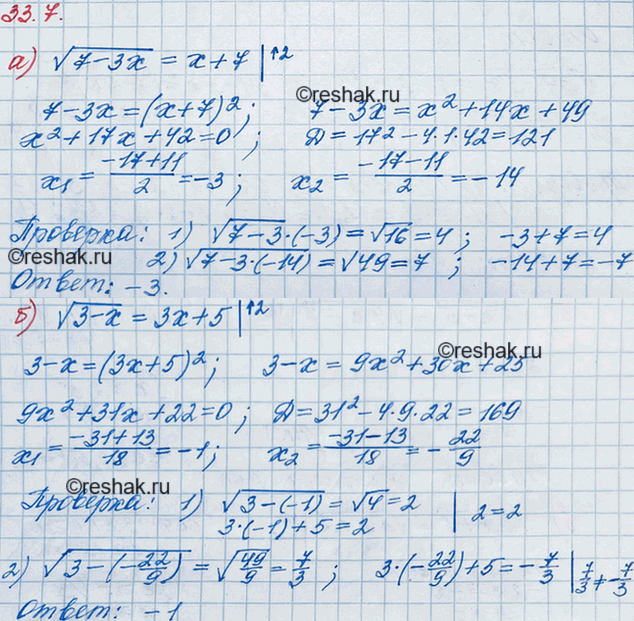 33.7.
а) √(7-3x) = x+7 |↑2
©reshak.ru
7-3x=(x+7)²; 7-3x=x²+14x+49
x²+17x+42=0; D=17²-4·1·42=121
x₁ = (-17+11)/2 = -3; x₂ = (-17-11)/2 = -14
Проверка: 1) √(7-3·(-3)) = √16 = 4; -3+7=4
©reshak.ru
2) √(7-3·(-14)) = √49 = 7; -14+7=-7
Ответ: -3.
б) √(3-x) = 3x+5 |↑2
©reshak.ru
3-x=(3x+5)²; 3-x=9x²+30x+25
9x²+31x+22=0; D=31²-4·9·22=169
x₁ = (-31+13)/18 = -1; x₂ = (-31-13)/18 = -22/9
©reshak.ru
Проверка: 1) √(3-(-1)) = √4 = 2 | 2=2
3·(-1)+5=2
2) √(3-(-22/9)) = √(49/9) = 7/3; 3·(-22/9)+5=-7/3 | 7/3≠-7/3
Ответ: -1